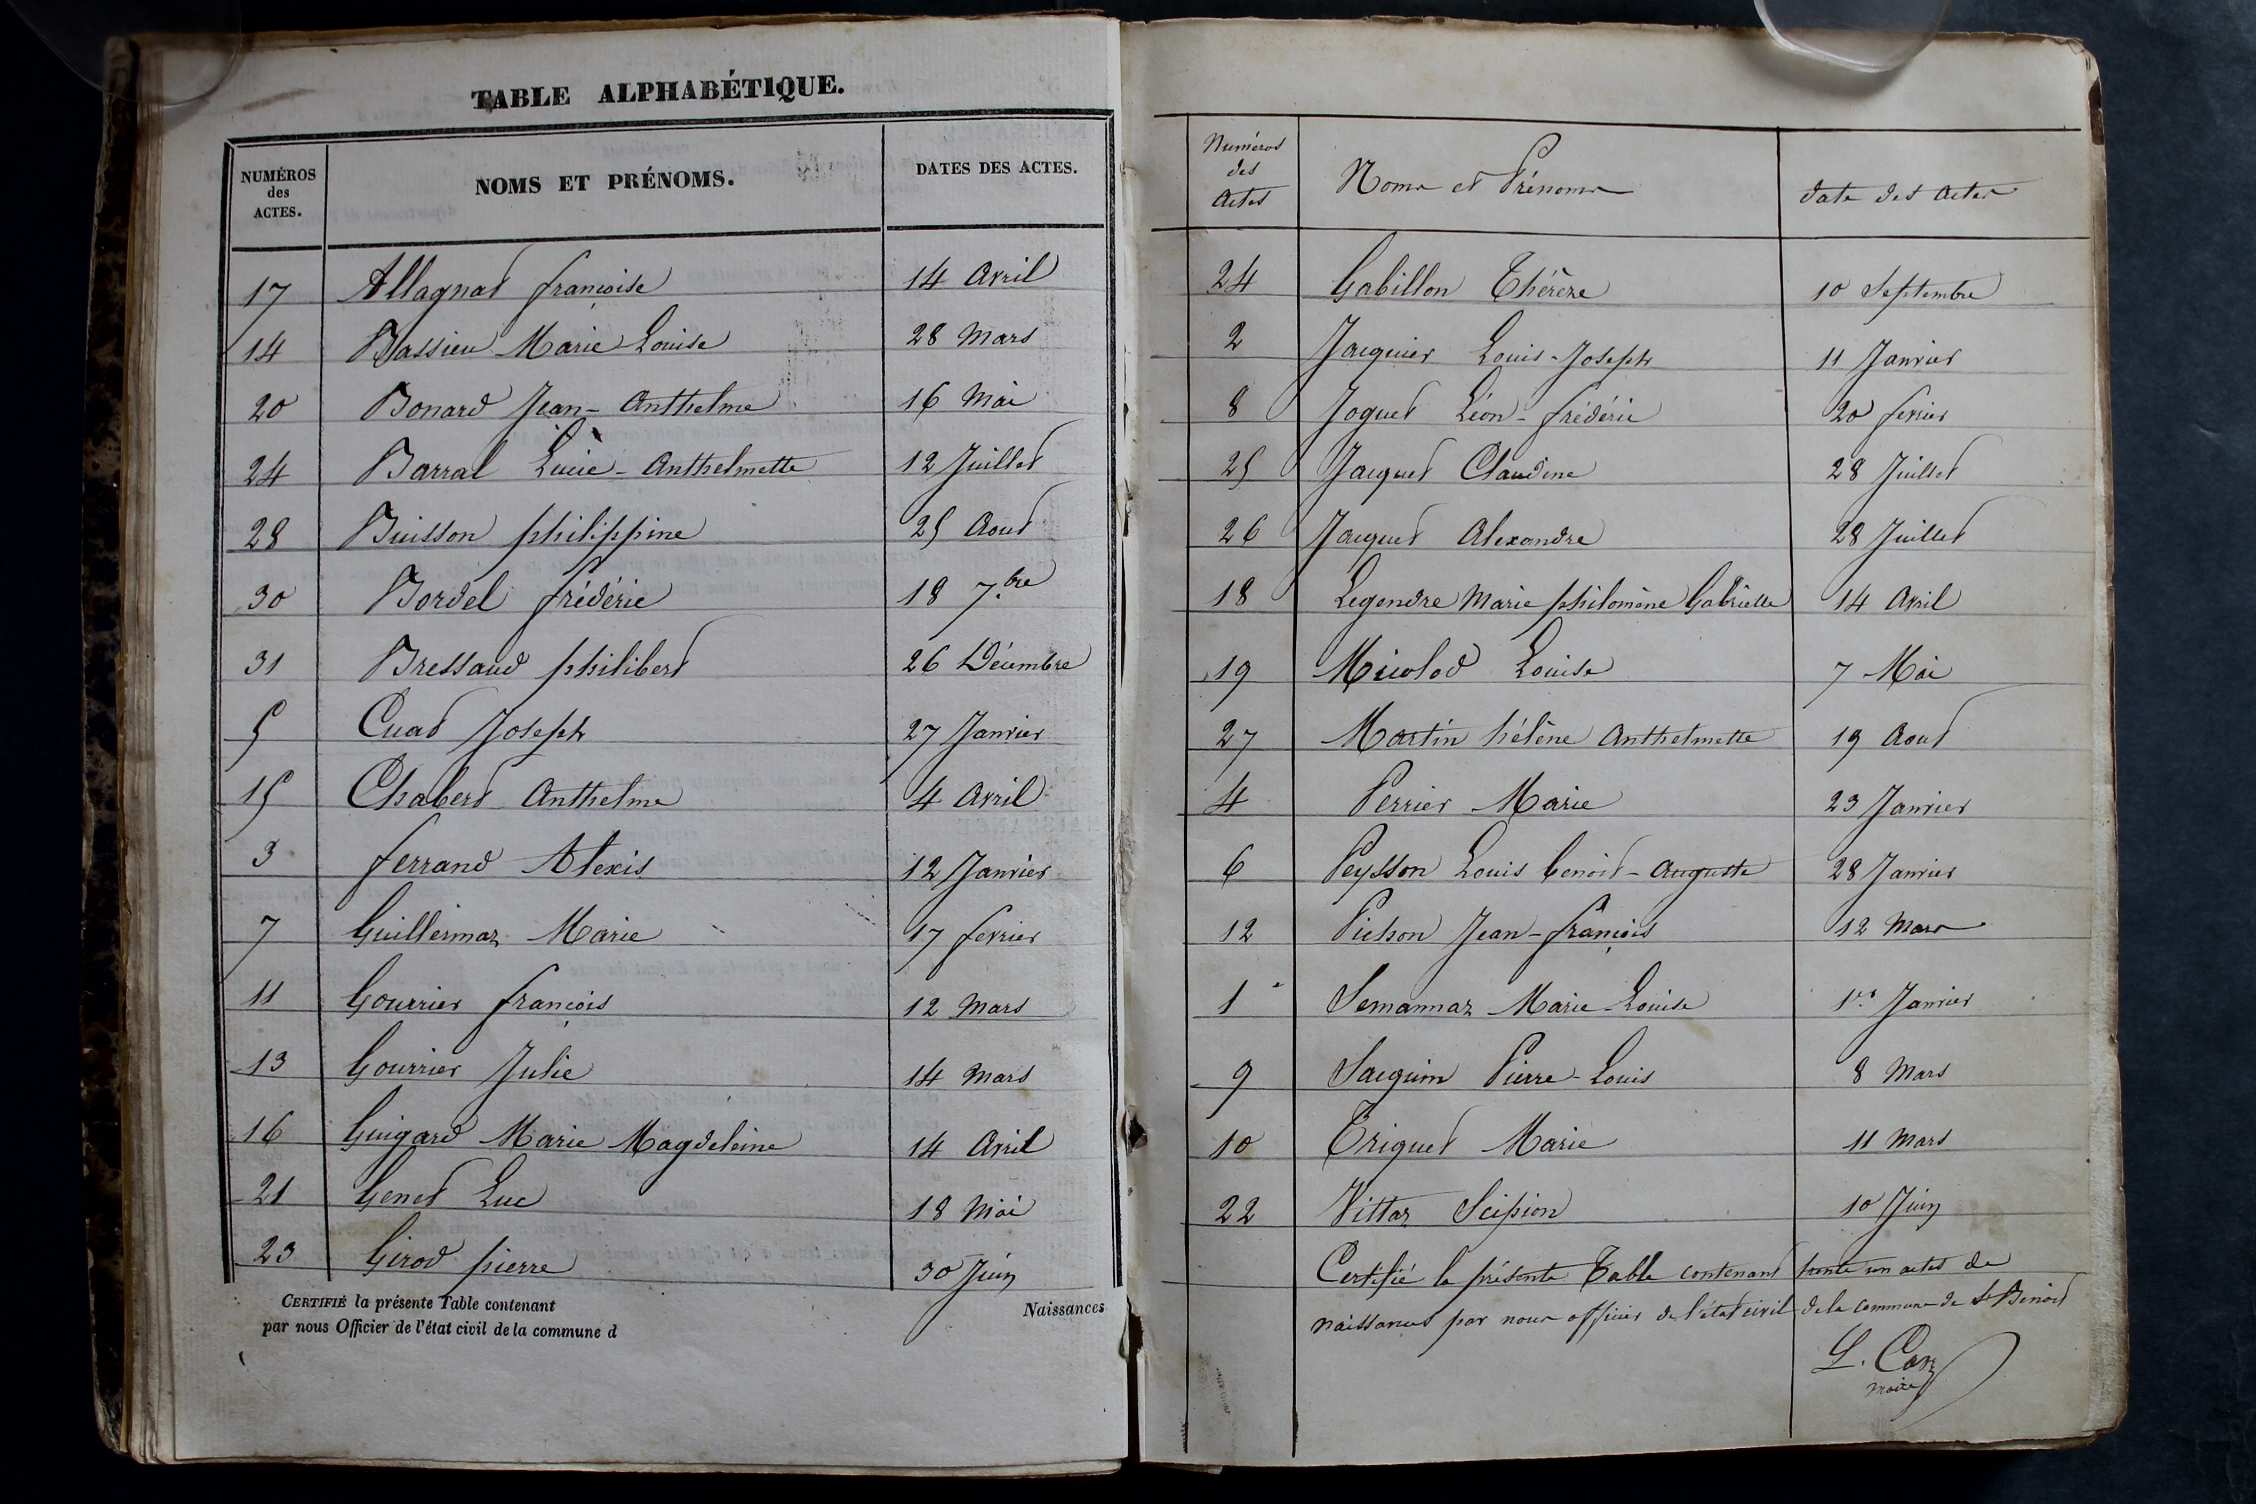 TABLE ALPHABÉTIQUE.
NUMÉROS des ACTES. NOMS ET PRÉNOMS. DATES DES ACTES.
17 Allagnat françoise 14 Avril
14 Bassieu Marie Louise 28 Mars
20 Bonard Jean-Anthelme 16 Mai
24 Barral Lucie-Anthelmette 12 Juillet
28 Buisson philippine 25 Aout
30 Bordel frédéric 18 7.bre
31 Bressaud philibert 26 Décembre
5 Cuat Joseph 27 Janvier
15 Chabert Anthelme 4 Avril
3 ferrand Alexis 12 Janvier
7 Guillermaz Marie 17 fevrier
11 Gourrier françois 12 Mars
13 Gourrier Julie 14 Mars
16 Guigard Marie Magdeleine 14 Avril
21 Genet Luc 18 Mai
23 Girod pierre 30 Juin
CERTIFIÉ la présente Table contenant Naissances
par nous Officier de l'état civil de la commune d
Numéros des Actes Noms et Prénoms date des Actes
24 Gabillon Thérèse 10 Septembre
2 Jacquier Louis-Joseph 11 Janvier
8 Joguet Léon-frédéric 20 fevrier
25 Jacquet Claudine 28 Juillet
26 Jacquet Alexandre 28 Juillet
18 Legendre Marie philomène Gabrielle 14 Avril
19 Micolod Louise 7 Mai
27 Martin hélène Anthelmette 19 Aout
4 Perrier Marie 23 Janvier
6 Peysson Louis benoit-Auguste 28 Janvier
12 Pichon Jean-françois 12 Mars
1 Semannaz Marie-Louise 1er Janvier
9 Saequin Pierre-Louis 8 Mars
10 Triquet Marie 11 Mars
22 Vittoz Scipion 10 Juin
Certifié la présente Table contenant trente un actes de
naissances par nous officier de l'état civil de la commune de St Benoit
L. Caz
maire